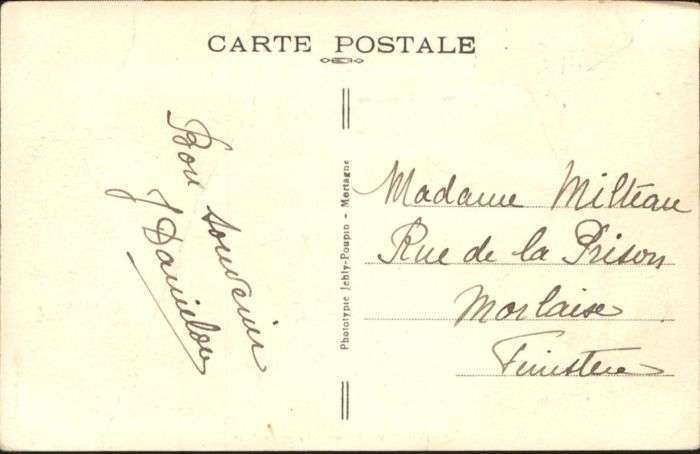 CARTE POSTALE
Bon souvenir
J Danielou
Phototypie Jehly-Poupin - Mortagne
Madame Milteau
Rue de la Prison
Morlaise
Finistere